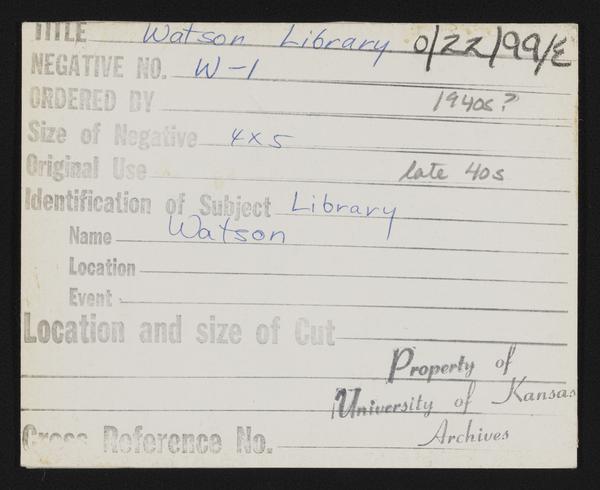 TITLE Watson Library 0/22/99/E
NEGATIVE NO. W-1
ORDERED BY 1940s?
Size of Negative 4x5
Original Use late 40s
Identification of Subject Library
Name Watson
Location
Event
Location and size of Cut
Property of
University of Kansas
Archives
Cross Reference No.